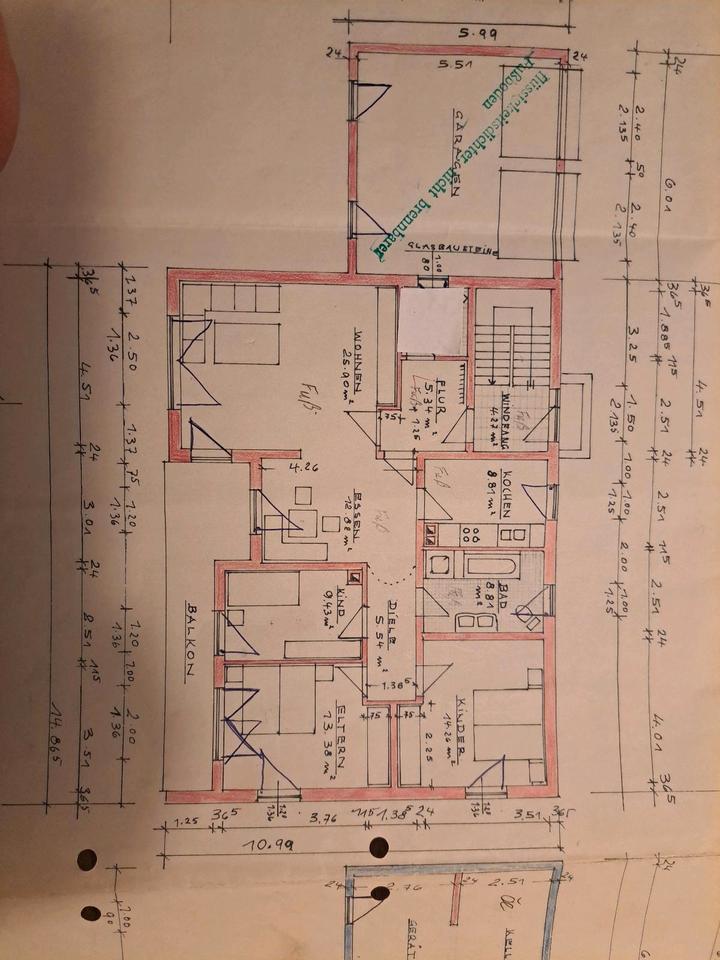 5.99
24
5.51
24
GARAGEN
Fußboden
flüssigkeitsdichter
nicht brennbarer
GLASBAUSTEINE
1.00
80
WOHNEN
25.90 m²
Fuß.
FLUR
5.34 m²
Fuß
+ 1.25
75
WINDFANG
4.27 m²
Fuß
4.26
ESSEN
12.82 m²
Fuß
KOCHEN
8.81 m²
Fuß
BAD
8.81
m²
Fuß
KIND
9.43 m²
DIELE
5.54 m²
1.36⁵
75
75
BALKON
ELTERN
13.38 m²
KINDER
14.26 m²
2.25
36⁵
1.37
2.50
1.36
1.37
75
1.20
1.36
1.20
1.36
1.00
2.00
1.36
4.51
24
3.01
24
8.51
11⁵
3.51
36⁵
14.865
24
2.40
2.135
50
2.40
2.135
6.01
36⁵
36⁵
3.25
1.885
11⁵
4.51
24
1.50
2.135
2.51
24
1.00
1.00
1.25
2.51
11⁵
2.00
1.00
1.25
2.51
24
4.01
36⁵
1.25
36⁵
3.76
11⁵
1.38⁵
24
3.51
36⁵
10.99
24
2.76
24
2.51
24
24
1.00
90
Öl
GERÄT
KELL
6